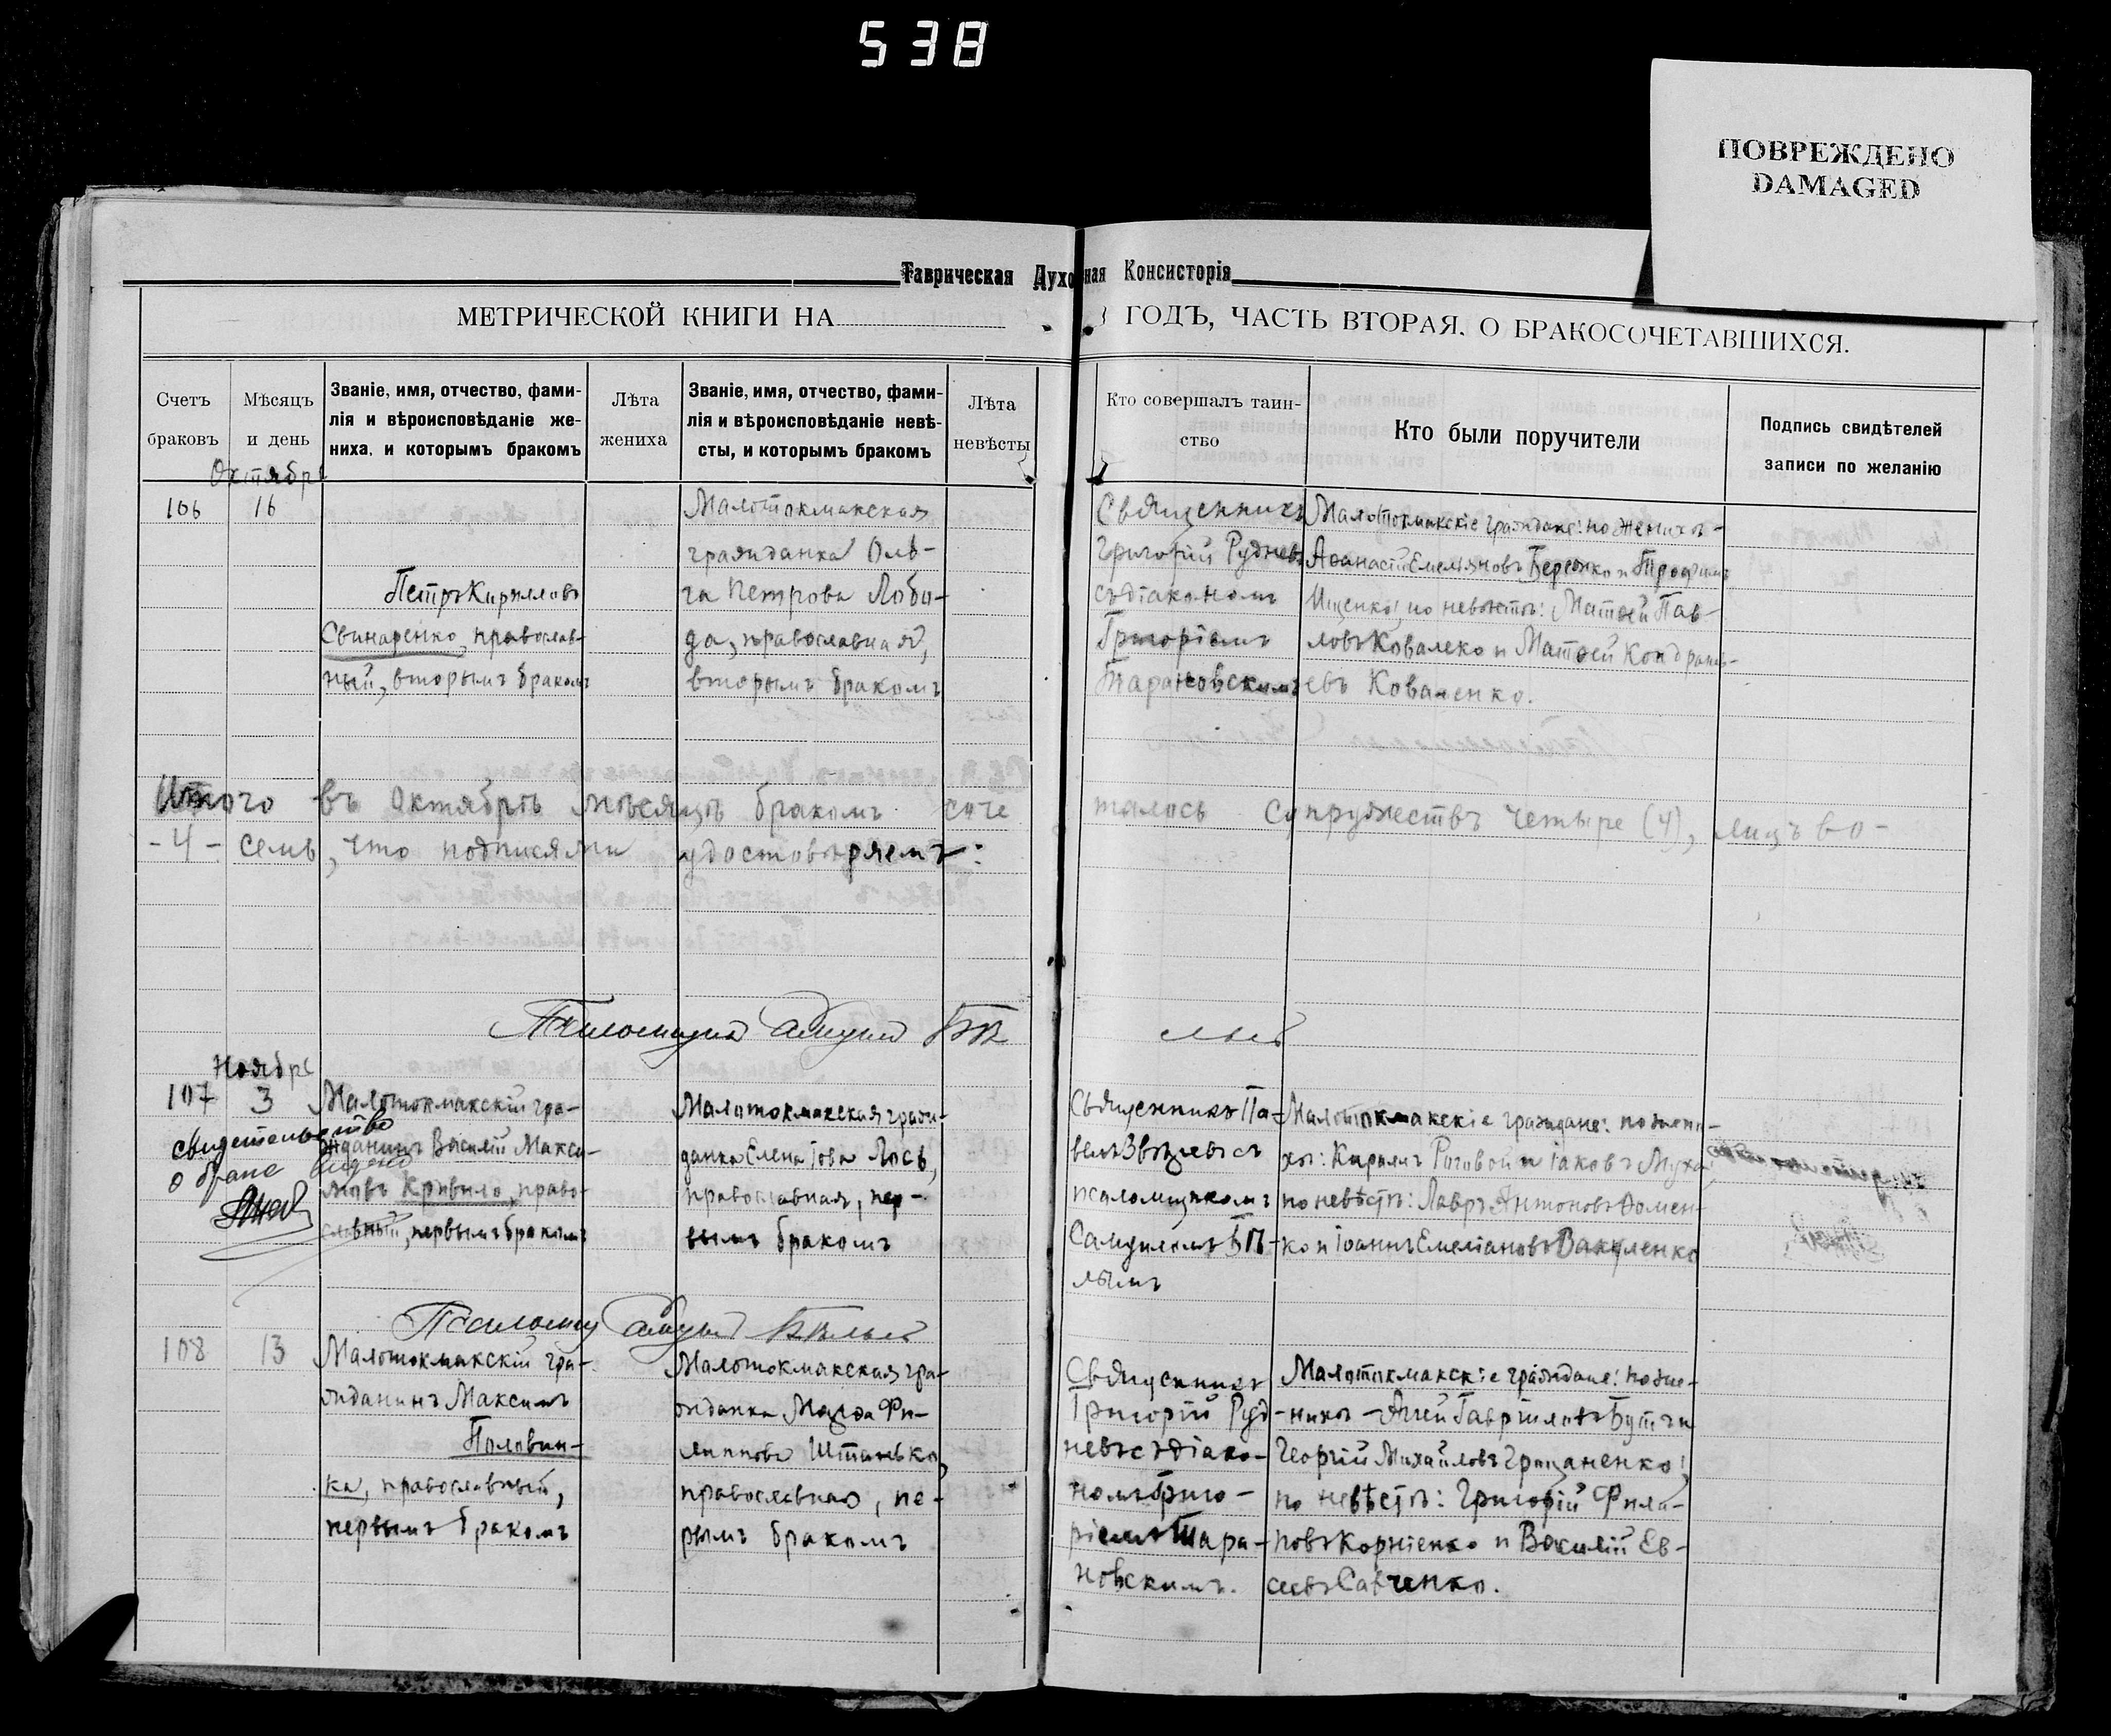 538
ПОВРЕЖДЕНО
DAMAGED
Таврическая Духовная Консисторія
МЕТРИЧЕСКОЙ КНИГИ НА ГОДЪ, ЧАСТЬ ВТОРАЯ, О БРАКОСОЧЕТАВШИХСЯ.
Счетъ
браковъ
Мѣсяцъ
и день
Званіе, имя, отчество, фами-
лія и вѣроисповѣданіе же-
ниха, и которымъ бракомъ
Лѣта
жениха
Званіе, имя, отчество, фами-
лія и вѣроисповѣданіе невѣ-
сты, и которымъ бракомъ
Лѣта
невѣсты
Кто совершалъ таин-
ство
Кто были поручители
Подпись свидѣтелей
записи по желанію
Октябрь
106
16
Петръ Кирилловъ
Свинаренко, православ-
ный, вторымъ бракомъ
Малотокмакская
гражданка Оль-
га Петрова Лобо-
да, православная,
вторымъ бракомъ
Священникъ
Григорій Рудневъ
съ діакономъ
Григоріемъ
Тарановскимъ
Малотокмакскіе граждане: по женихѣ-
Аѳанасій Емельяновъ и Трофимъ
Ищенко; по невѣстѣ: Матѳей Пав-
ловъ Ковалеко и Матѳей Кондрать-
евъ Коваленко.
Итого въ Октябрѣ мѣсяцѣ бракомъ соче
талось супружествъ четыре (4), лицъ во-
-4- семь, что подписями удостовѣряемъ:
Псаломщикъ Самуилъ Бѣ
лый
Ноябрь
107
3
свидетельство
о браке видано
Малотокмакскій гра-
жданинъ Василій Макси-
мовъ Кривило, право-
славный, первымъ бракомъ
Малотокмакская граж-
данка Елена Іова Лось,
православная, пер-
вымъ бракомъ
Священникъ Па-
велъ Звѣревъ съ
псаломщикомъ
Самуиломъ Бѣ-
лымъ
Малотокмакскіе граждане: по жени-
хѣ: Кириллъ Роговой и Іаковъ Муха;
по невѣстѣ: Лавръ Антоновъ Домен-
ко и Іоаннъ Емеліановъ Вакуленко
Псаломщ Самуилъ Бѣлый
108
13
Малотокмакскій гра-
жданинъ Максимъ
Половин-
ка, православный,
первымъ бракомъ
Малотокмакская гра-
жданка Марѳа Фи-
липпова Штанько,
православная, пе-
рымъ бракомъ
Священникъ
Григорій Руд-
невъ съ діако-
номъ Григо-
ріемъ Тара-
новскимъ.
Малотокмакскіе граждане: по же-
нихѣ - Гавріиловъ Бутъ и
Георгій Михайловъ Гриценко;
по невѣстѣ: Григорій Фили-
повъ Корніенко и Василій Ев-
сеевъ Савченко.